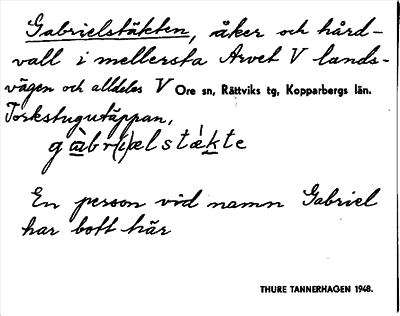 Gabrielstäkten, åker och hård-
vall i mellersta Arvet V lands-
vägen och alldeles V Ore sn, Rättviks tg, Kopparbergs län.
Torkstugutäppan,
gàbr(i)ælstǽkte
En person vid namn Gabriel
har bott här
THURE TANNERHAGEN 1948.